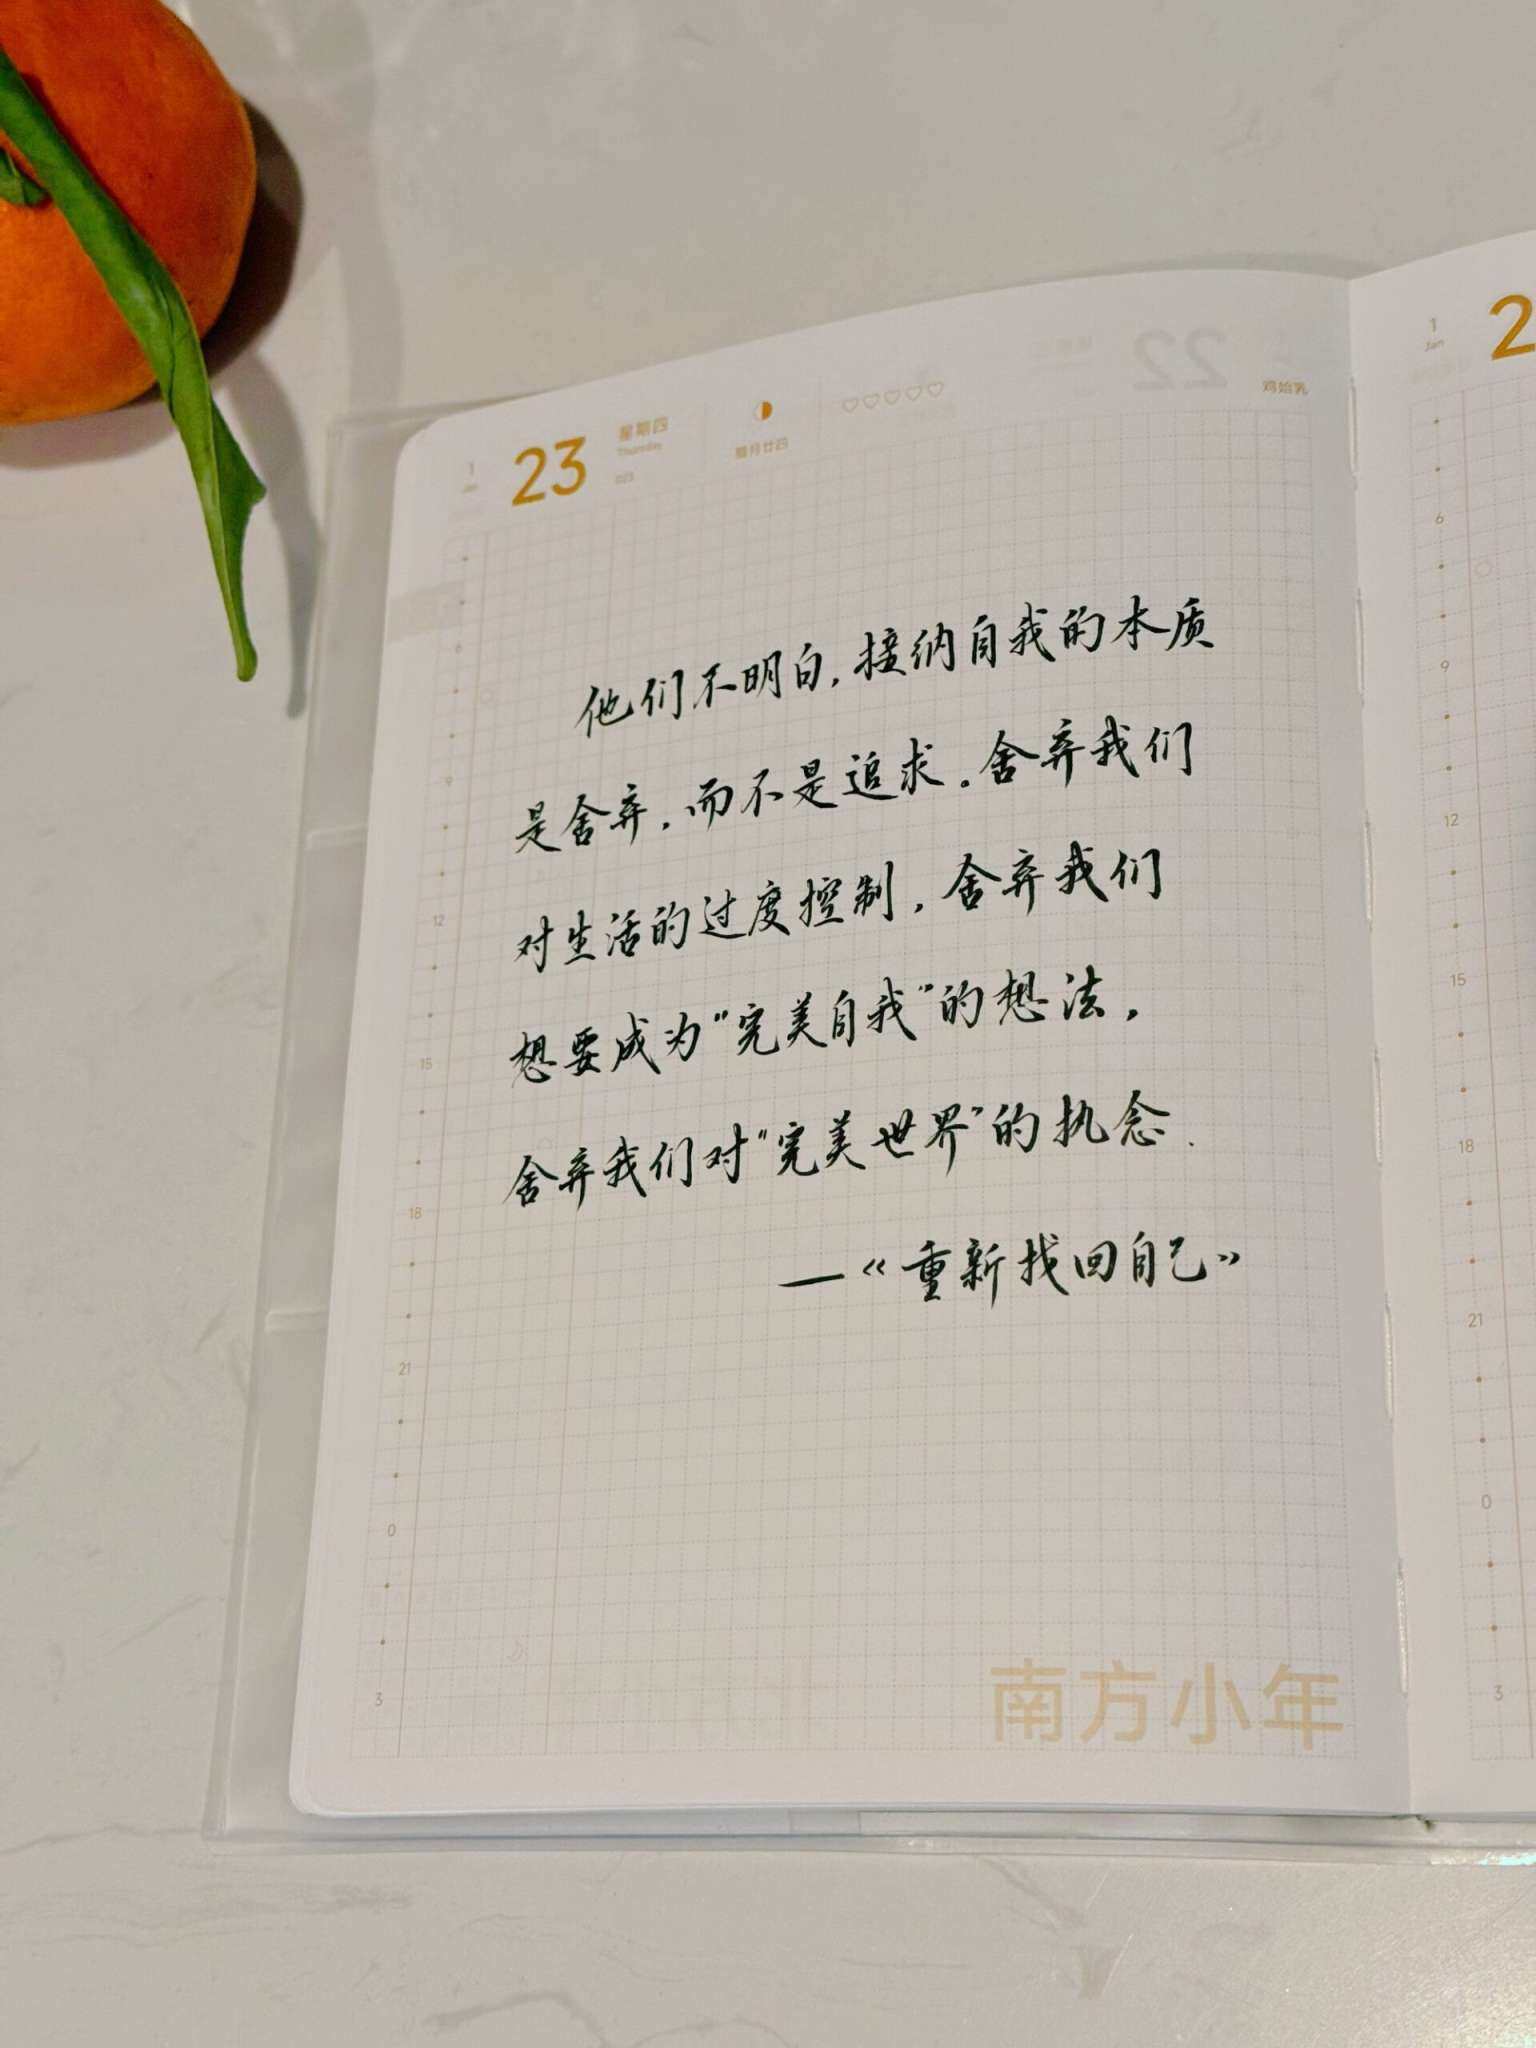 1
Jan
23
星期四
Thursday
023
腊月廿四
鸡始乳
他们不明白，接纳自我的本质
是舍弃，而不是追求。舍弃我们
对生活的过度控制，舍弃我们
想要成为“完美自我”的想法，
舍弃我们对“完美世界”的执念.
—《重新找回自己》
6
9
12
15
18
21
0
3
南方小年
1
Jan
2
6
9
12
15
18
21
0
3